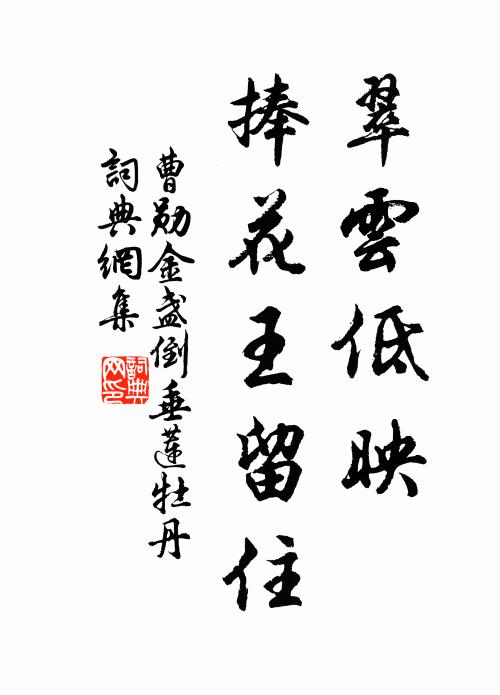 翠雲低映
捧花王留住
曹勋金盏倒垂莲牡丹
詞典網集
詞典
网印